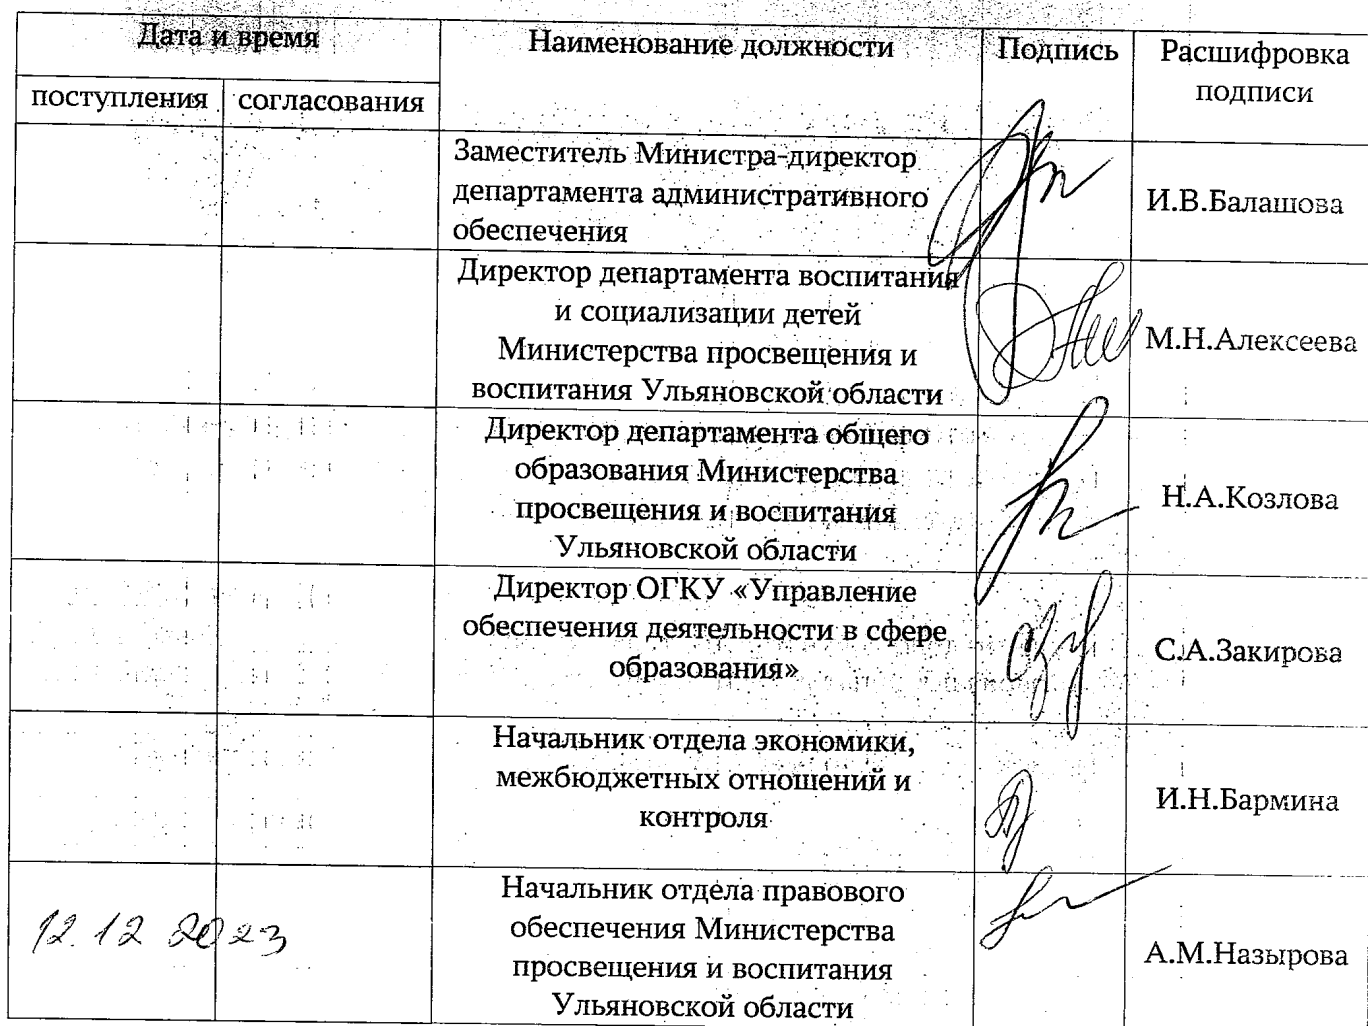 Дата и время
Наименование должности
Подпись
Расшифровка
подписи
поступления
согласования
Заместитель Министра-директор
департамента административного
обеспечения
И.В.Балашова
Директор департамента воспитания
и социализации детей
Министерства просвещения и
воспитания Ульяновской области
М.Н.Алексеева
Директор департамента общего
образования Министерства
просвещения и воспитания
Ульяновской области
Н.А.Козлова
Директор ОГКУ «Управление
обеспечения деятельности в сфере
образования»
С.А.Закирова
Начальник отдела экономики,
межбюджетных отношений и
контроля
И.Н.Бармина
12.12 2023
Начальник отдела правового
обеспечения Министерства
просвещения и воспитания
Ульяновской области
А.М.Назырова